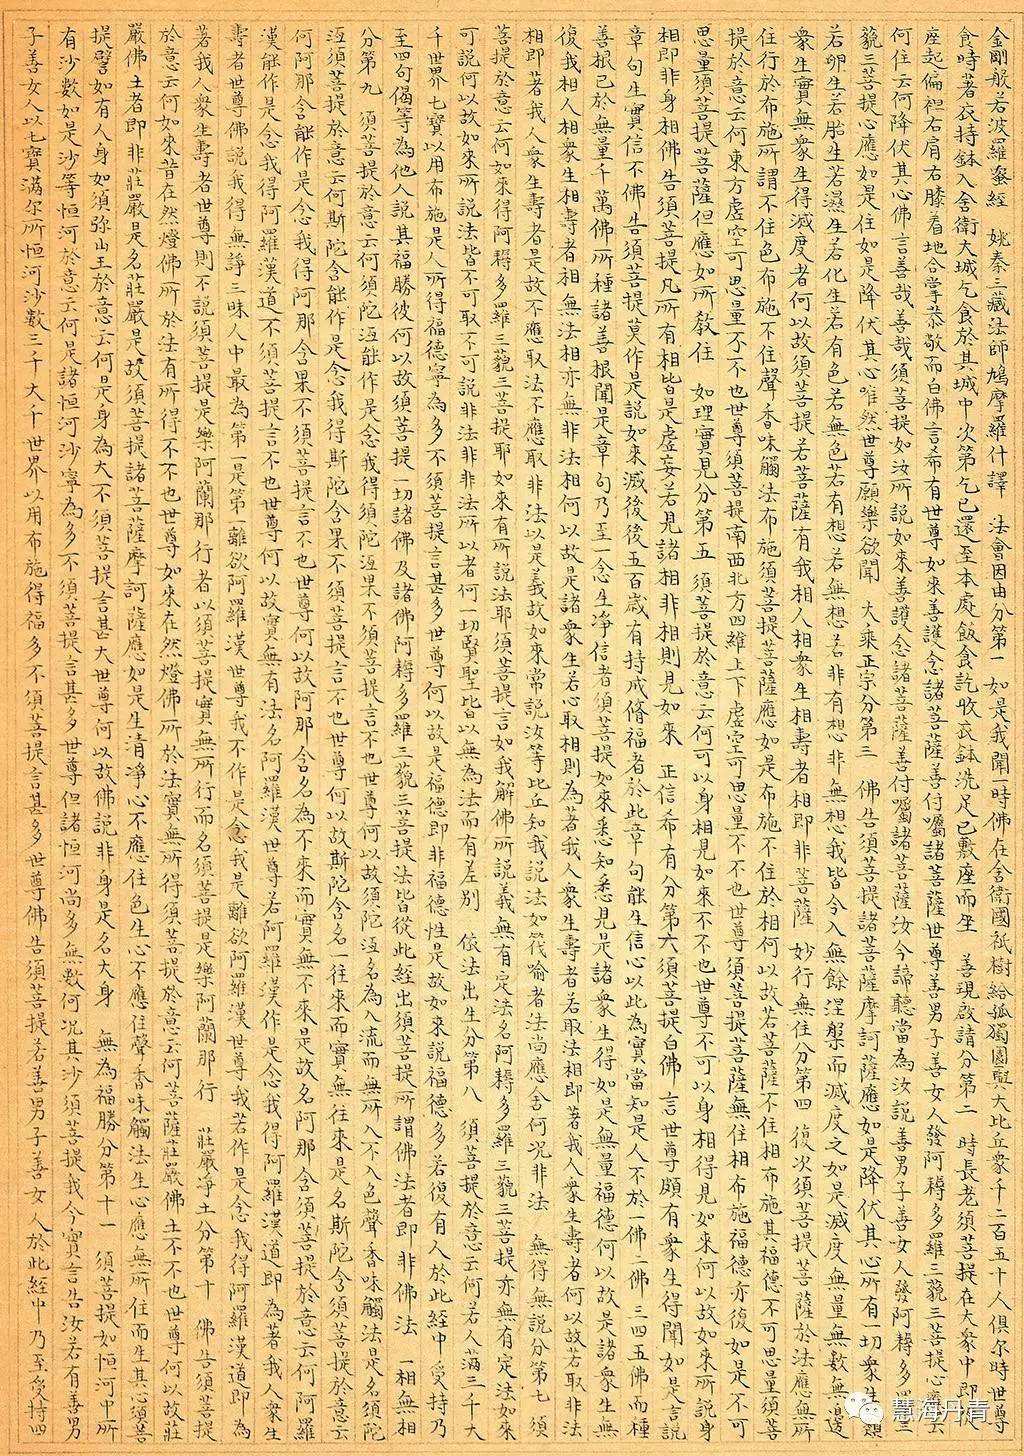 金剛般若波羅蜜經 姚秦三藏法師鳩摩羅什譯 法會因由分第一 如是我聞一時佛在舍衛國祇樹給孤獨園與大比丘衆千二百五十人俱尔時世尊
食時著衣持鉢入舍衛大城乞食於其城中次第乞已還至本處飯食訖收衣鉢洗足已敷座而坐 善現啟請分第二 時長老須菩提在大衆中即
座起偏袒右肩右膝着地合掌恭敬而白佛言希有世尊如来善護念諸菩薩善付囑諸菩薩世尊善男子善女人發阿耨多羅三藐三菩提心應云
何住云何降伏其心佛言善哉善哉須菩提如汝所說如来善護念諸菩薩善付囑諸菩薩汝今諦聽當為汝說善男子善女人發阿耨多羅三
藐三菩提心應如是住如是降伏其心唯然世尊願樂欲聞 大乘正宗分第三 佛告須菩提諸菩薩摩訶薩應如是降伏其心所有一切衆生之類
若卵生若胎生若濕生若化生若有色若無色若有想若無想若非有想非無想我皆令入無餘涅槃而滅度之如是滅度無量無數無邊
衆生實無衆生得滅度者何以故須菩提若菩薩有我相人相衆生相壽者相即非菩薩 妙行無住分第四 復次須菩提菩薩於法應無所
住行於布施所謂不住色布施不住聲香味觸法布施須菩提菩薩應如是布施不住於相何以故若菩薩不住相布施其福德不可思量須菩
提於意云何東方虛空可思量不不也世尊須菩提南西北方四維上下虛空可思量不不也世尊須菩提菩薩無住相布施福德亦復如是不可
思量須菩提菩薩但應如所教住 如理實見分第五 須菩提於意云何可以身相見如来不不也世尊不可以身相得見如来何以故如来所說身
相即非身相佛告須菩提凡所有相皆是虛妄若見諸相非相則見如来 正信希有分第六 須菩提白佛言世尊頗有衆生得聞如是言說
章句生實信不佛告須菩提莫作是說如来滅後後五百歲有持戒脩福者於此章句能生信心以此為實當知是人不於一佛二佛三四五佛而種
善根已於無量千萬佛所種諸善根聞是章句乃至一念生净信者須菩提如來悉知悉見是諸衆生得如是無量福德何以故是諸衆生無
復我相人相衆生相壽者相無法相亦無非法相何以故是諸衆生若心取相則為著我人衆生壽者若取法相即著我人衆生壽者何以故若取非法
相即著我人衆生壽者是故不應取法不應取非法以是義故如來常說汝等比丘知我說法如筏喻者法尚應舍何况非法 無得無說分第七 須
菩提於意云何如來得阿耨多羅三藐三菩提耶如來有所說法耶須菩提言如我解佛所說義無有定法名阿耨多羅三藐三菩提亦無有定法如來
可說何以故如來所說法皆不可取不可說非法非非法所以者何一切賢聖皆以無為法而有差别 依法出生分第八 須菩提於意云何若人滿三千大
千世界七寶以用布施是人所得福德寧為多不須菩提言甚多世尊何以故是福德即非福德性是故如來說福德多若復有人於此經中受持乃
至四句偈等為他人說其福勝彼何以故須菩提一切諸佛及諸佛阿耨多羅三藐三菩提法皆從此經出須菩提所謂佛法者即非佛法 一相無相
分第九 須菩提於意云何須陀洹能作是念我得須陀洹果不須菩提言不也世尊何以故須陀洹名為入流而無所入不入色聲香味觸法是名須陀
洹須菩提於意云何斯陀含能作是念我得斯陀含果不須菩提言不也世尊何以故斯陀含名一往來而實無往來是名斯陀含須菩提於意云
何阿那含能作是念我得阿那含果不須菩提言不也世尊何以故阿那含名為不來而實無不來是故名阿那含須菩提於意云何阿羅
漢能作是念我得阿羅漢道不須菩提言不也世尊何以故實無有法名阿羅漢世尊若阿羅漢作是念我得阿羅漢道即為著我人衆生
壽者世尊佛說我得無諍三昧人中最為第一是第一離欲阿羅漢世尊我不作是念我是離欲阿羅漢世尊我若作是念我得阿羅漢道即為
著我人衆生壽者世尊則不說須菩提是樂阿蘭那行者以須菩提實無所行而名須菩提是樂阿蘭那行 莊嚴净土分第十 佛告須菩提
於意云何如來昔在然燈佛所於法有所得不不也世尊如來在然燈佛所於法實無所得須菩提於意云何菩薩莊嚴佛土不不也世尊何以故莊
嚴佛土者即非莊嚴是名莊嚴是故須菩提諸菩薩摩訶薩應如是生清淨心不應住色生心不應住聲香味觸法生心應無所住而生其心須菩
提譬如有人身如須弥山王於意云何是身為大不須菩提言甚大世尊何以故佛說非身是名大身 無為福勝分第十一 須菩提如恒河中所
有沙數如是沙等恒河於意云何是諸恒河沙寧為多不須菩提言甚多世尊但諸恒河尚多無數何况其沙須菩提我今實言告汝若有善男
子善女人以七寶滿尔所恒河沙數三千大千世界以用布施得福多不須菩提言甚多世尊佛告須菩提若善男子善女人於此經中乃至受持四
慧海丹青